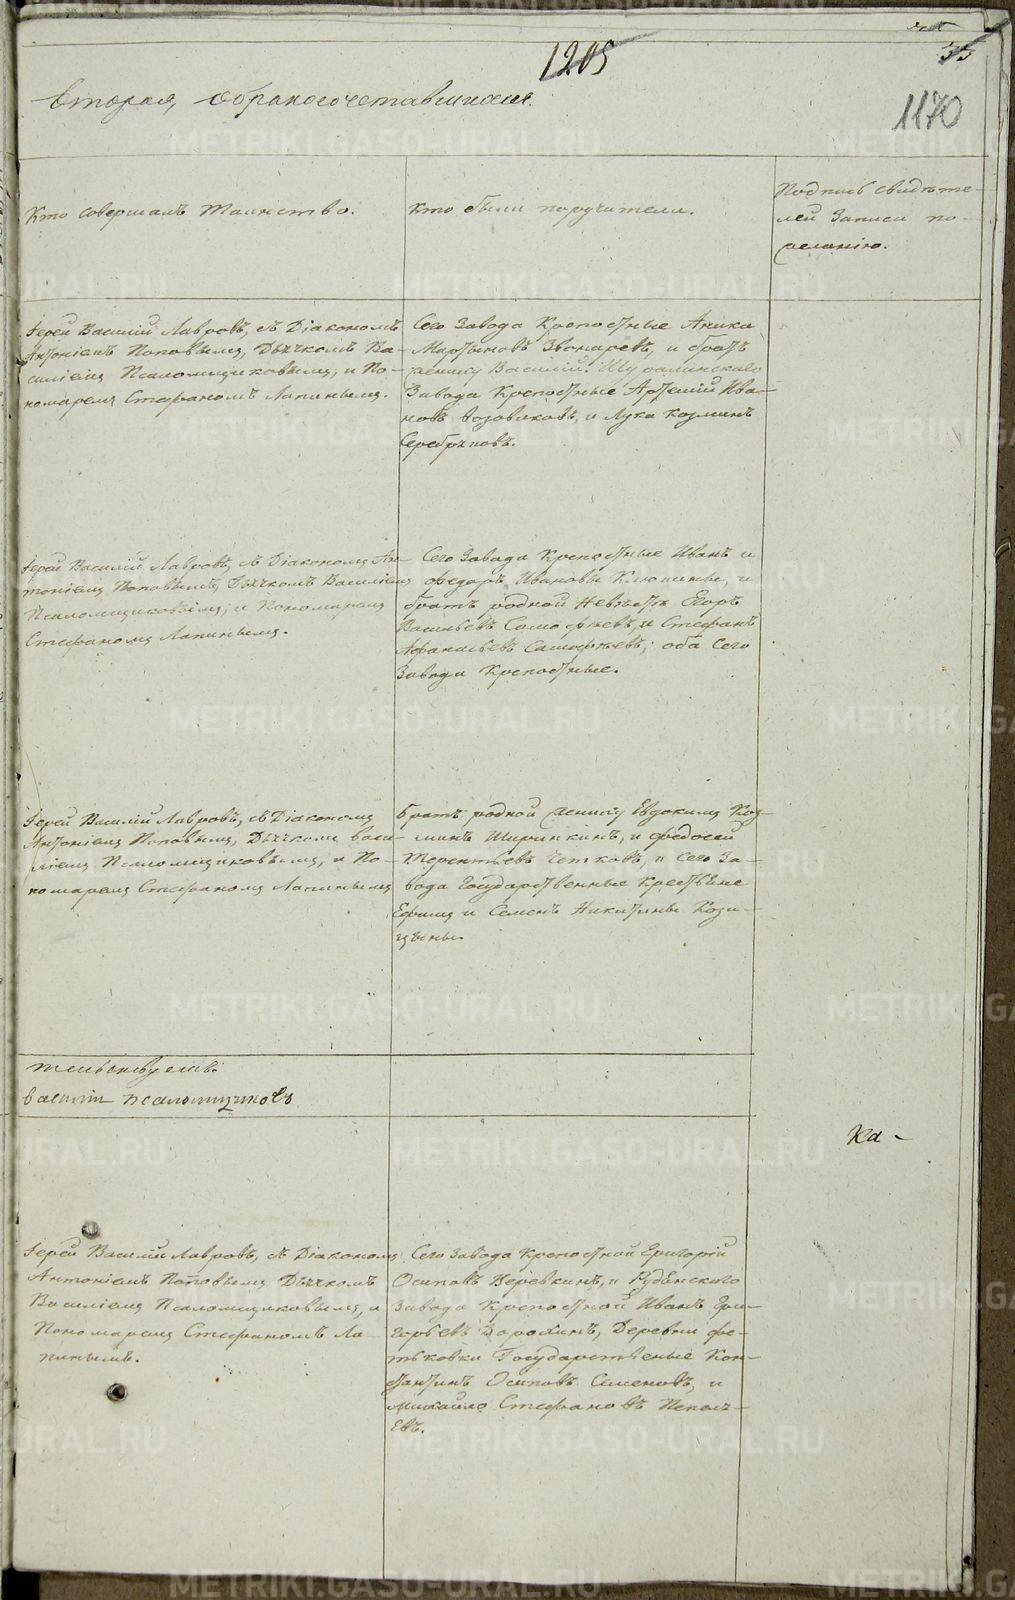 1205
35
1170
вторая, обракосочетавшихся.
Кто совершалъ таинство.
Кто были поручители.
Подпись свидѣте-
лей записи по
желанію.
Іерей Василій Лавровъ, съ Діакономъ
Антоніемъ Поповымъ, Дьячкомъ Ва-
силіемъ Псаломщиковымъ, и По-
номаремъ Стефаномъ Лапинымъ.
Сего Завода Крепостные Аника
Мартыновъ Звонаревъ, и братъ
жениху Василій. Шуралинскаго
Завода Крепостные Артемій Ива-
новъ возовиковъ, и Лука Козминъ
Серебряковъ.
Іерей Василій Лавровъ, съ Діакономъ Ан-
тоніемъ Поповымъ, Дьячкомъ Василіемъ
Псаломщиковымъ, и Пономаремъ
Стефаномъ Лапинымъ.
Сего Завода Крепостные Иванъ и
Федоръ Ивановы Клюкины, и
братъ родной Невѣстѣ Егоръ
Васильевъ и Стефанъ
Афанасьевъ оба Сего
Завода Крепостные.
Іерей Василій Лавровъ, съ Діакономъ
Антоніемъ Поповымъ, Дьячкомъ Васи-
ліемъ Псаломщиковымъ, и По-
номаремъ Стефаномъ Лапинымъ
братъ родной жениху Евдокимъ Коз-
минъ Ширинкинъ, и Федосей
Терентьевъ Четковъ, и Сего За-
вода Государственные Крестьяне
Ефимъ и Семенъ Никитины Кози-
цыны.
тельствуемъ.
василій псаломщиковъ
Ка-
Іерей Василій Лавровъ, съ Діакономъ
Антоніемъ Поповымъ Дьячкомъ
Василіемъ Псаломщиковымъ, и
Пономаремъ Стефаномъ Ла-
пинымъ.
Сего Завода Крепостной Григорій
Осиповъ Веревкинъ, и Рудянскаго
Завода Крепостной Иванъ Гри-
горьевъ Деревни Фе-
тьковки Государственные Кон-
стантинъ Осиповъ Семеновъ, и
Михайло Стефановъ
METRIKI.GASO-URAL.RU